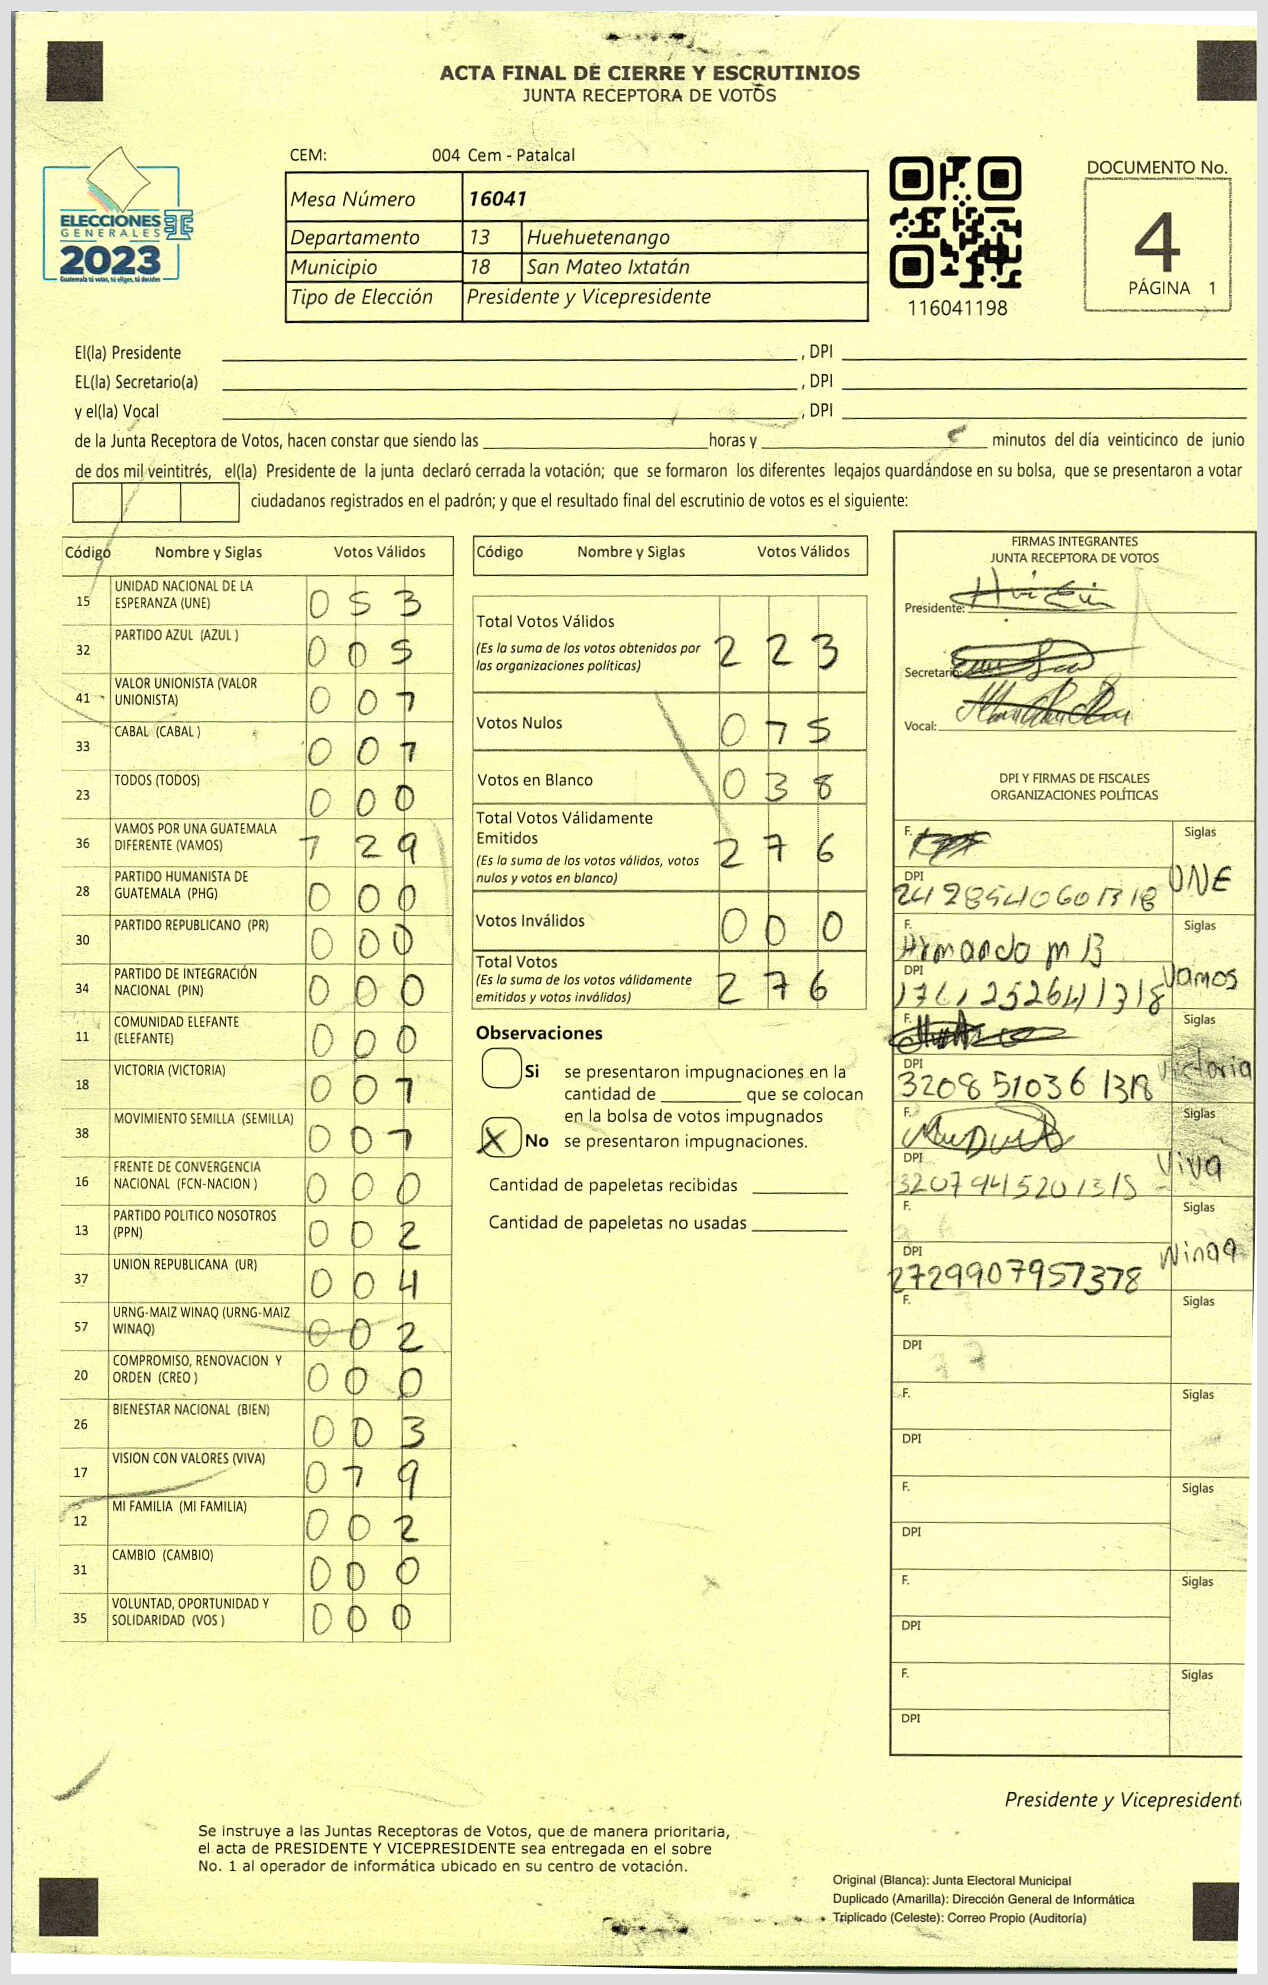 ACTA FINAL DE CIERRE Y ESCRUTINIOS
JUNTA RECEPTORA DE VOTOS
ELECCIONES
GENERALES
2023
Guatemala tú votas, tú eliges, tú decides
CEM: 004 Cem - Patalcal
Mesa Número 16041
Departamento 13 Huehuetenango
Municipio 18 San Mateo Ixtatán
Tipo de Elección Presidente y Vicepresidente
116041198
DOCUMENTO No.
4
PÁGINA 1
El(la) Presidente , DPI
EL(la) Secretario(a) , DPI
y el(la) Vocal , DPI
de la Junta Receptora de Votos, hacen constar que siendo las horas y minutos del día veinticinco de junio
de dos mil veintitrés, el(la) Presidente de la junta declaró cerrada la votación; que se formaron los diferentes legajos guardándose en su bolsa, que se presentaron a votar
ciudadanos registrados en el padrón; y que el resultado final del escrutinio de votos es el siguiente:
Código Nombre y Siglas Votos Válidos
15 UNIDAD NACIONAL DE LA ESPERANZA (UNE) 0 5 3
32 PARTIDO AZUL (AZUL ) 0 0 5
41 VALOR UNIONISTA (VALOR UNIONISTA) 0 0 1
33 CABAL (CABAL ) 0 0 1
23 TODOS (TODOS) 0 0 0
36 VAMOS POR UNA GUATEMALA DIFERENTE (VAMOS) 1 2 9
28 PARTIDO HUMANISTA DE GUATEMALA (PHG) 0 0 0
30 PARTIDO REPUBLICANO (PR) 0 0 0
34 PARTIDO DE INTEGRACIÓN NACIONAL (PIN) 0 0 0
11 COMUNIDAD ELEFANTE (ELEFANTE) 0 0 0
18 VICTORIA (VICTORIA) 0 0 1
38 MOVIMIENTO SEMILLA (SEMILLA) 0 0 1
16 FRENTE DE CONVERGENCIA NACIONAL (FCN-NACION ) 0 0 0
13 PARTIDO POLITICO NOSOTROS (PPN) 0 0 2
37 UNION REPUBLICANA (UR) 0 0 4
57 URNG-MAIZ WINAQ (URNG-MAIZ WINAQ) 0 0 2
20 COMPROMISO, RENOVACION Y ORDEN (CREO ) 0 0 0
26 BIENESTAR NACIONAL (BIEN) 0 0 3
17 VISION CON VALORES (VIVA) 0 1 9
12 MI FAMILIA (MI FAMILIA) 0 0 2
31 CAMBIO (CAMBIO) 0 0 0
35 VOLUNTAD, OPORTUNIDAD Y SOLIDARIDAD (VOS ) 0 0 0
Código Nombre y Siglas Votos Válidos
Total Votos Válidos
(Es la suma de los votos obtenidos por
las organizaciones políticas) 2 2 3
Votos Nulos 0 1 5
Votos en Blanco 0 3 8
Total Votos Válidamente
Emitidos
(Es la suma de los votos válidos, votos
nulos y votos en blanco) 2 7 6
Votos Inválidos 0 0 0
Total Votos
(Es la suma de los votos válidamente
emitidos y votos inválidos) 2 7 6
Observaciones
Si se presentaron impugnaciones en la
cantidad de que se colocan
en la bolsa de votos impugnados
X No se presentaron impugnaciones.
Cantidad de papeletas recibidas
Cantidad de papeletas no usadas
FIRMAS INTEGRANTES
JUNTA RECEPTORA DE VOTOS
Presidente:
Secretario:
Vocal:
DPI Y FIRMAS DE FISCALES
ORGANIZACIONES POLÍTICAS
F. Siglas
DPI UNE
2428540601318
F. Siglas
Armando m B
DPI Vamos
1761252641318
F. Siglas
DPI Victoria
3208510361318
F. Siglas
DPI Viva
3207945201318
F. Siglas
DPI Winaq
2729907951318
F. Siglas
DPI
F. Siglas
DPI
F. Siglas
DPI
F. Siglas
DPI
F. Siglas
DPI
Presidente y Vicepresident
Se instruye a las Juntas Receptoras de Votos, que de manera prioritaria,
el acta de PRESIDENTE Y VICEPRESIDENTE sea entregada en el sobre
No. 1 al operador de informática ubicado en su centro de votación.
Original (Blanca): Junta Electoral Municipal
Duplicado (Amarilla): Dirección General de Informática
Triplicado (Celeste): Correo Propio (Auditoría)